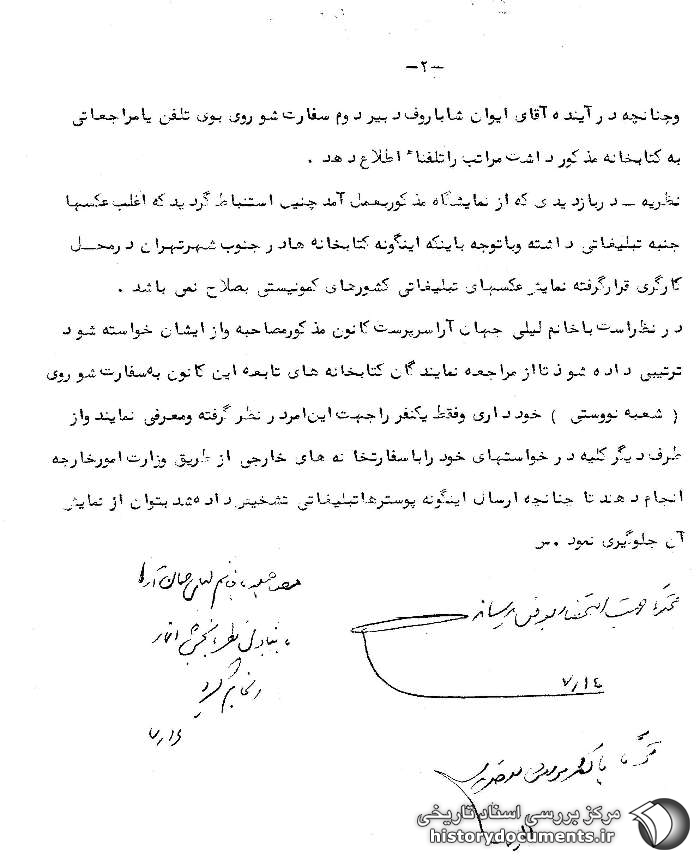 -۲-
وچنانچه در آینده آقای ایوان شاباروف دبیر دوم سفارت شوروی بوی تلفن یامراجعاتی
به کتابخانه مذکور داشت مراتب راتلفناً اطلاع دهد .
نظریه ــ دربازدیدی که از نمایشگاه مذکوربعمل آمد چنین استنباط گردید که اغلب عکسها
جنبه تبلیغاتی داشته وباتوجه باینکه اینگونه کتابخانه هادر جنوب شهرتهران درمحــل
کارگری قرارگرفته نمایش عکسهای تبلیغاتی کشورهای کمونیستی بصلاح نمی باشد .
در نظراست باخانم لیلی جهان آراسرپرست کانون مذکورمصاحبه واز ایشان خواسته شود
ترتیبی داده شود تااز مراجعه نمایندگان کتابخانه های تابعه این کانون به سفارت شوروی
( شعبه نووستی ) خودداری وفقط یکنفر راجهت این امردر نظر گرفته ومعرفی نمایند واز
طرف دیگر کلیه درخواستهای خود راباسفارتخانه های خارجی از طریق وزارت امورخارجه
انجام دهند تا چنانچه ارسال اینگونه پوسترهاتبلیغاتی تشخیص داده شد بتوان از نمایش
آن جلوگیری نمود .س
مصاحبه با خانم لیلی جهان آرا
۷/۱۴
۷/۱۶
مرکز بررسی اسناد تاریخی
historydocuments.ir